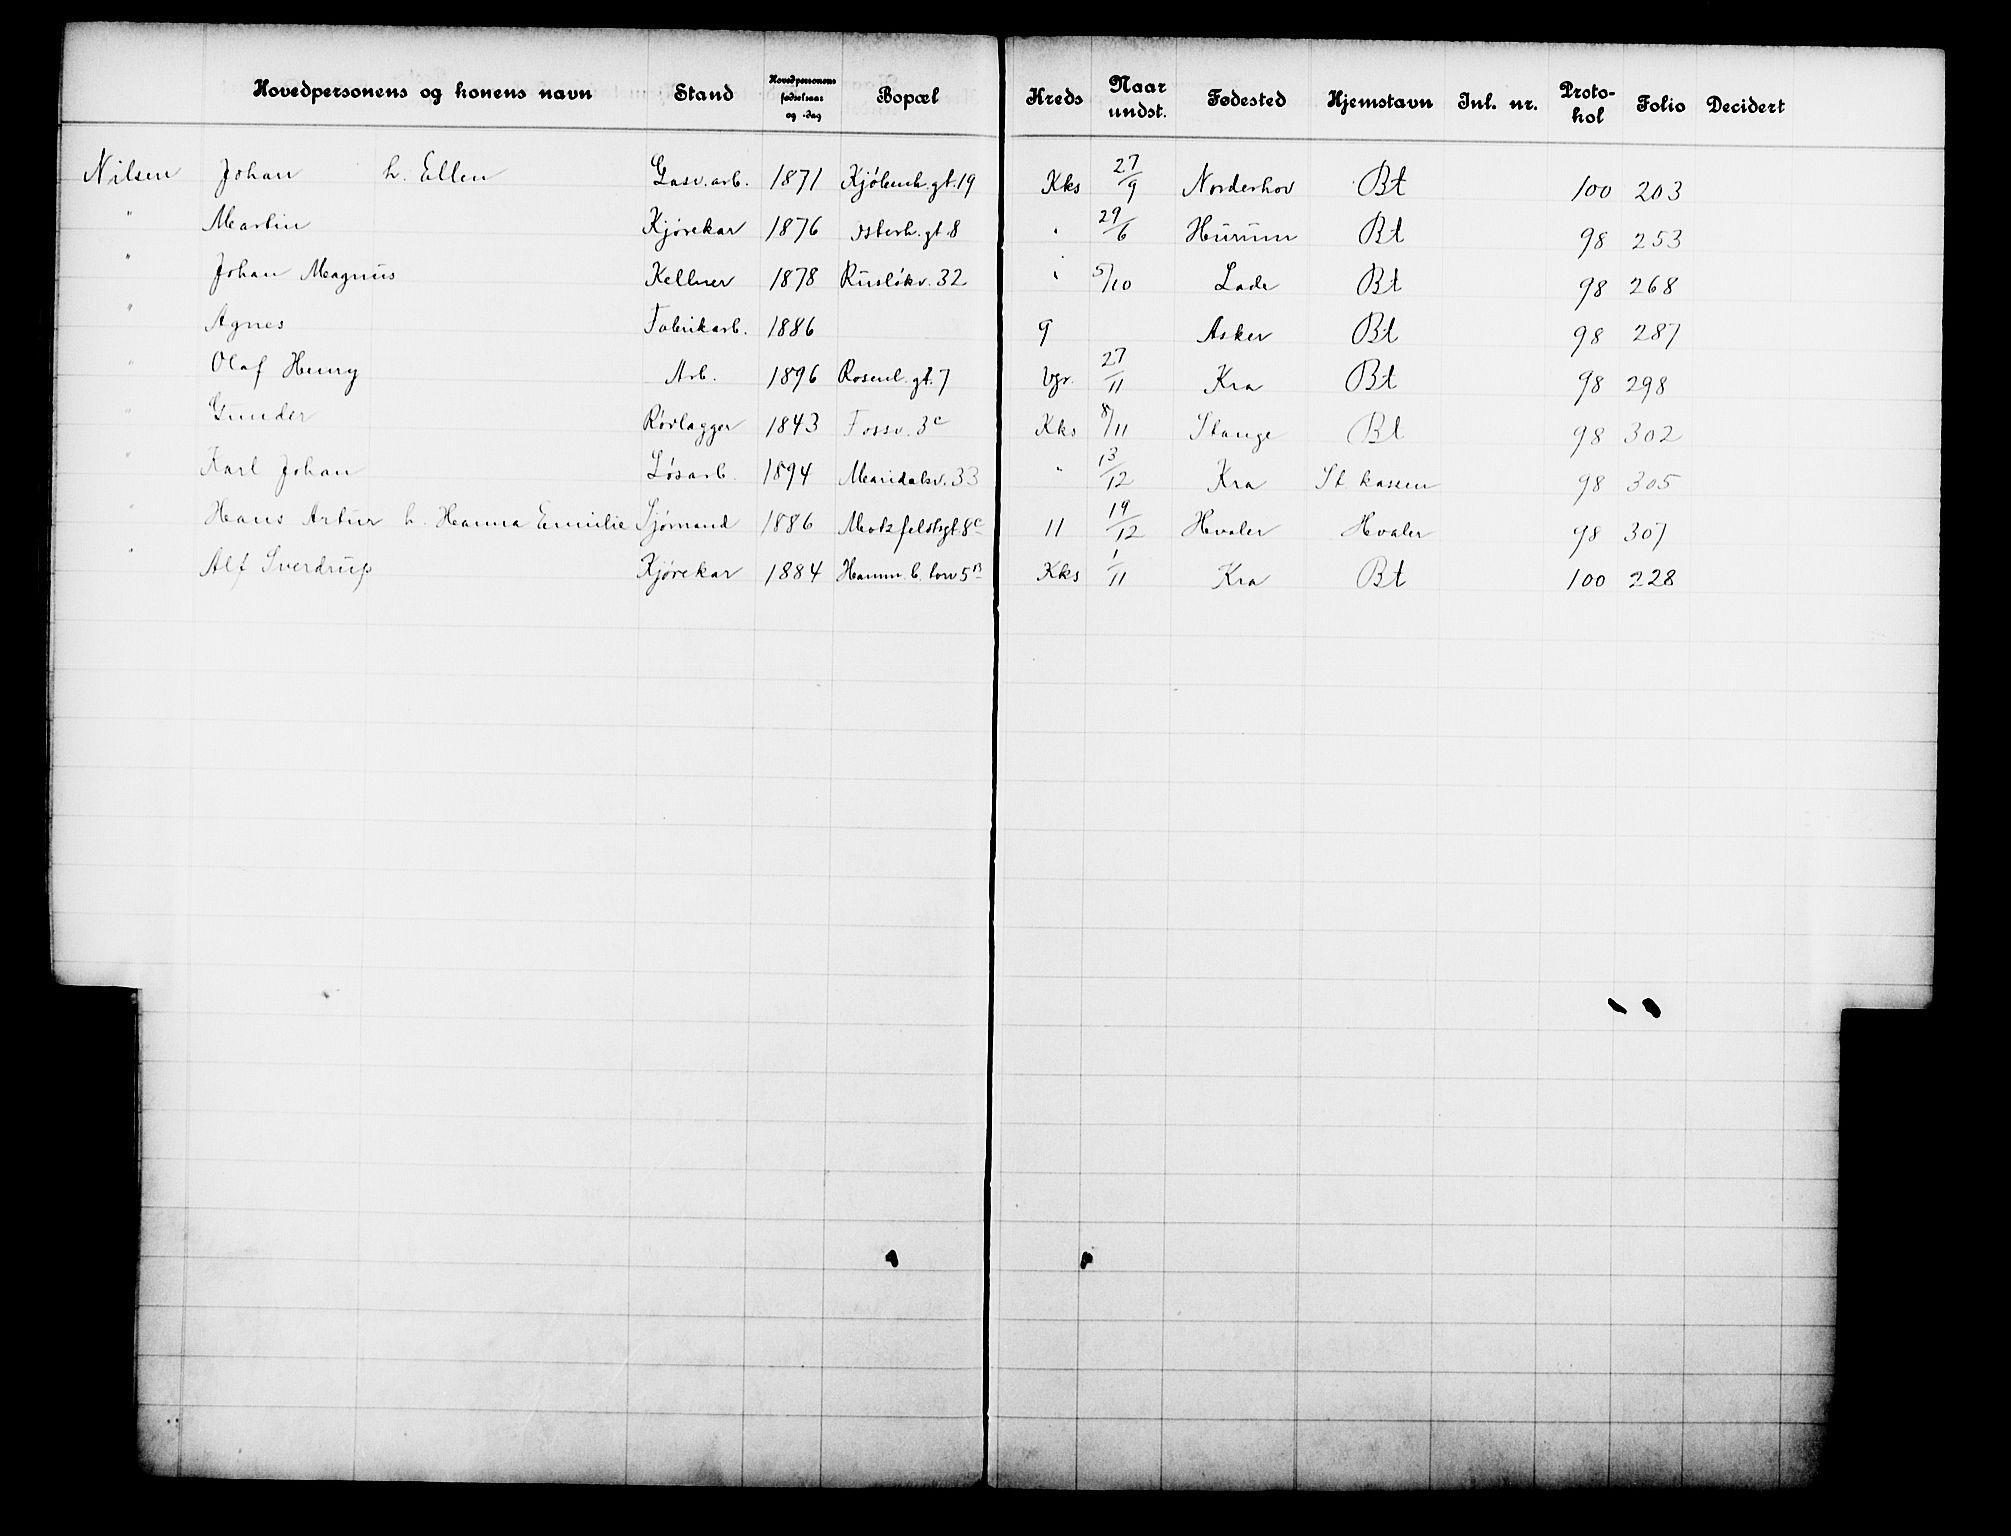 Hovedpersonens og konens navn Stand Hovedpersonens fødselsaar og -dag Bopæl Kreds Naar undst. Fødested Hjemstavn Inl. nr. Protokol Folio Decidert
Nilsen Johan h. Ellen Gasv.arb. 1871 Kjøbenh.gt.19 Kks 27/9 Norderhov Bt 100 203
" Martin Kjørekar 1876 Osterh.gt.8 " 29/6 Hurum Bt 98 253
" Johan Magnus Kellner 1878 Rusløkv.32 " 5/10 Lade Bt 98 268
" Agnes Fabrikarb. 1886 9 Asker Bt 98 287
" Olaf Henry Arb. 1896 Rosenb.gt.7 Vgr. 27/11 Kra Bt 98 298
" Gunder Rørlægger 1843 Fossv.3c Kks 8/11 Stange Bt 98 302
" Karl Johan Løsarb. 1894 Maridalsv.33 " 13/12 Kra St. kassen 98 305
" Hans Artur h. Hanna Emilie Sjømand 1886 Motzfeldtsgt.8c 11 19/12 Hvaler Hvaler 98 307
" Alf Sverdrup Kjørekar 1884 Hamm.b. torv 5B Kks 1/11 Kra Bt 100 228